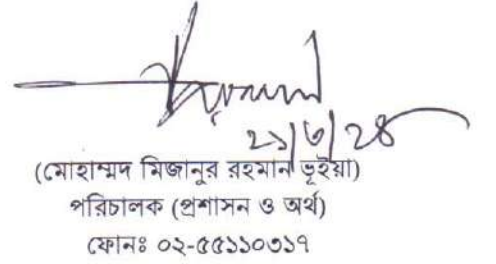 ২১/৩/২৪
(মোহাম্মদ মিজানুর রহমান ভূইয়া)
পরিচালক (প্রশাসন ও অর্থ)
ফোনঃ ০২-৫৫১১০৩১৭